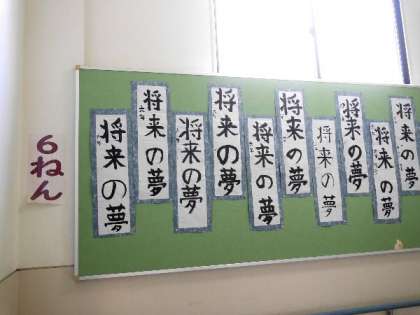 6ねん
将来の夢
将来の夢
将来の夢
将来の夢
将来の夢
将来の夢
将来の夢
将来の夢
将来の夢
将来の夢